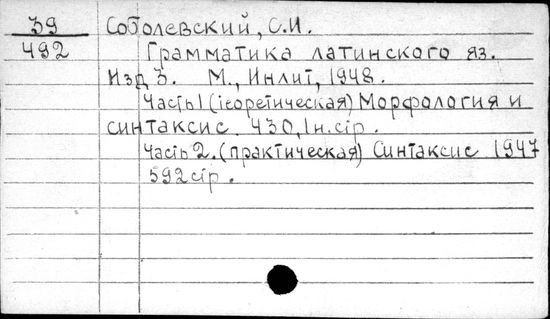 39 Соболевский, С.И.
492 Грамматика латинского яз.
Изд 3. М., Инлит, 1948.
Часть 1 (теоретическая) Морфология и
синтаксис. 430, 1 н. стр.
Часть 2. (практическая) Синтаксис 1947
592 стр.